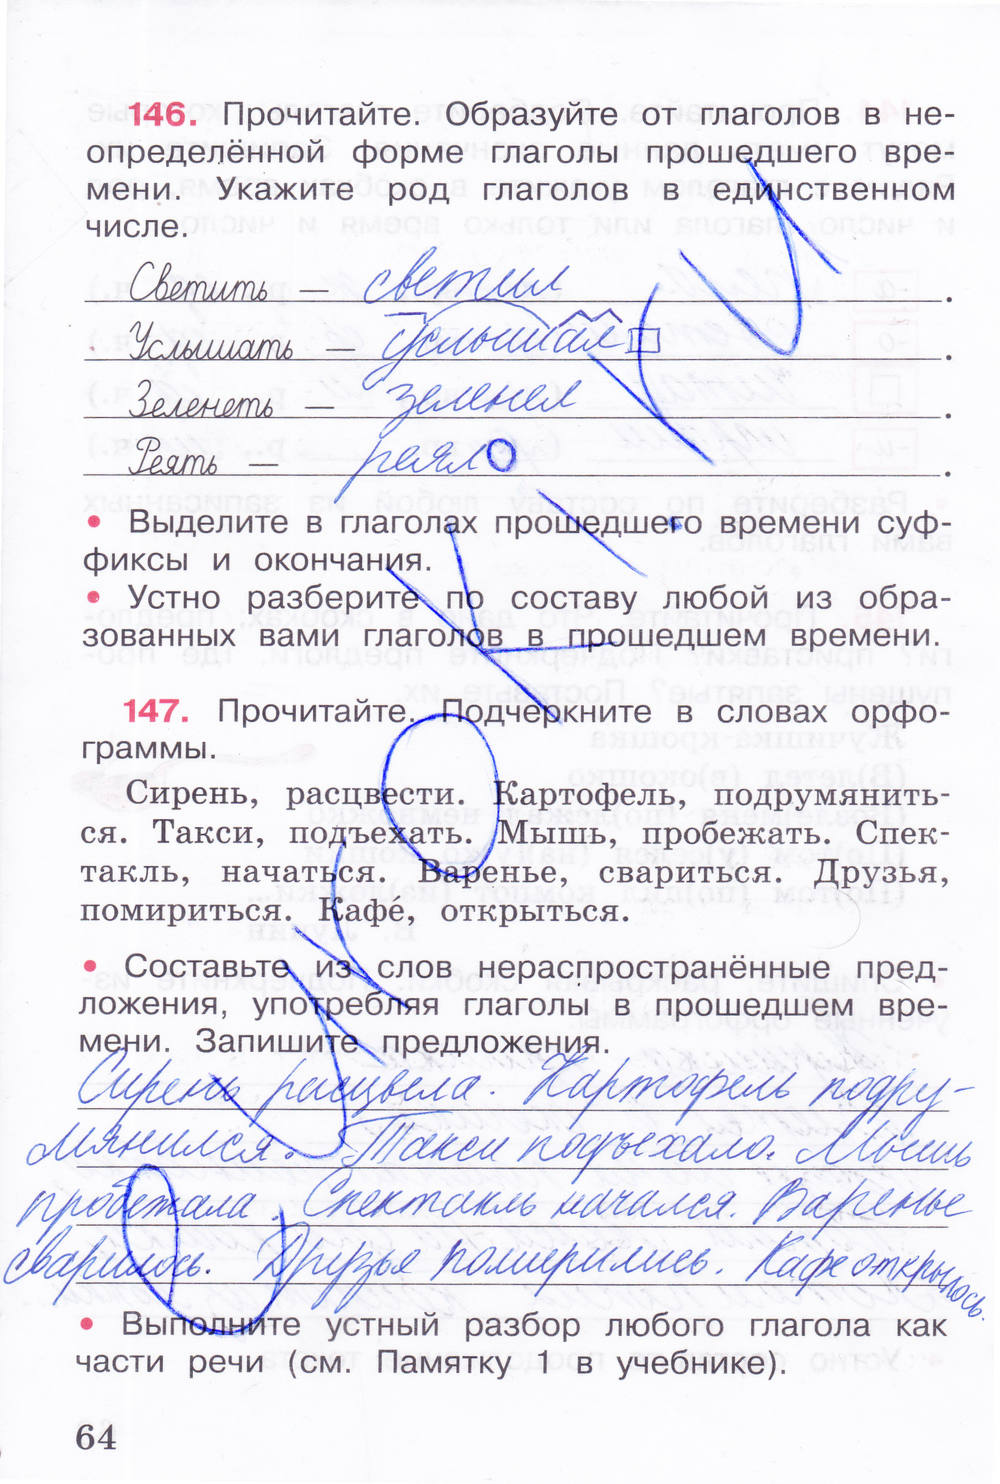 146. Прочитайте. Образуйте от глаголов в не-
определённой форме глаголы прошедшего вре-
мени. Укажите род глаголов в единственном
числе.
Светить — светил.
Услышать — услышал.
Зеленеть — зеленел.
Реять — реяло.
• Выделите в глаголах прошедшего времени суф-
фиксы и окончания.
• Устно разберите по составу любой из обра-
зованных вами глаголов в прошедшем времени.
147. Прочитайте. Подчеркните в словах орфо-
граммы.
Сирень, расцвести. Картофель, подрумянить-
ся. Такси, подъехать. Мышь, пробежать. Спек-
такль, начаться. Варенье, свариться. Друзья,
помириться. Кафе́, открыться.
• Составьте из слов нераспространённые пред-
ложения, употребляя глаголы в прошедшем вре-
мени. Запишите предложения.
Сирень расцвела. Картофель подру-
мянился. Такси подъехало. Мышь
пробежала. Спектакль начался. Варенье
сварилось. Друзья помирились. Кафе открылось.
• Выполните устный разбор любого глагола как
части речи (см. Памятку 1 в учебнике).
64